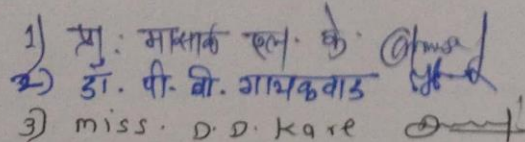 1) प्रा. मासाळ एल. के.
2) डॉ. पी. बी. गायकवाड
3) miss. D. D. Kare